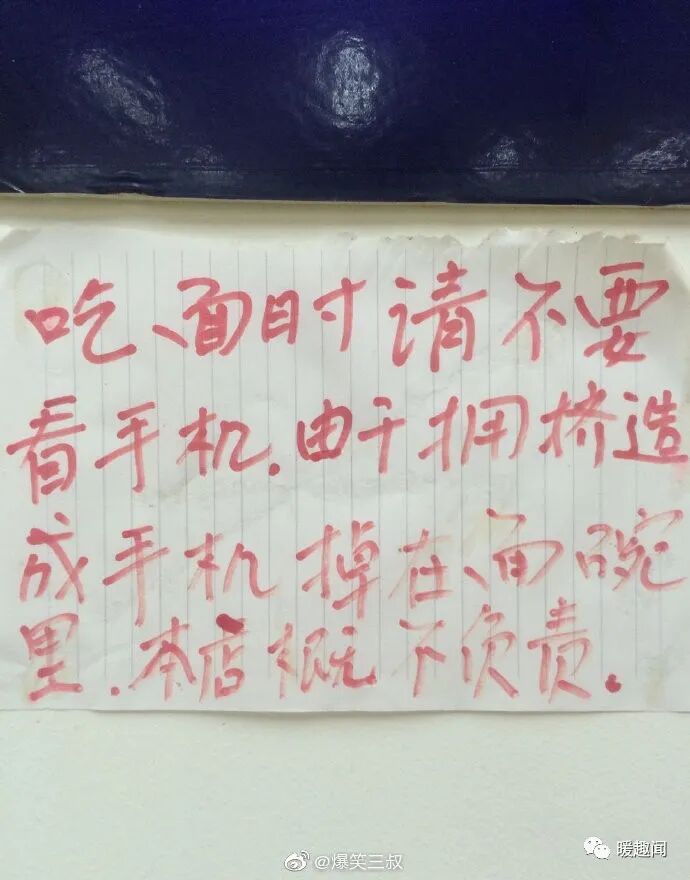 吃面时请不要
看手机.由于拥挤造
成手机掉在面碗
里.本店概不负责.
@爆笑三叔
暖趣闻